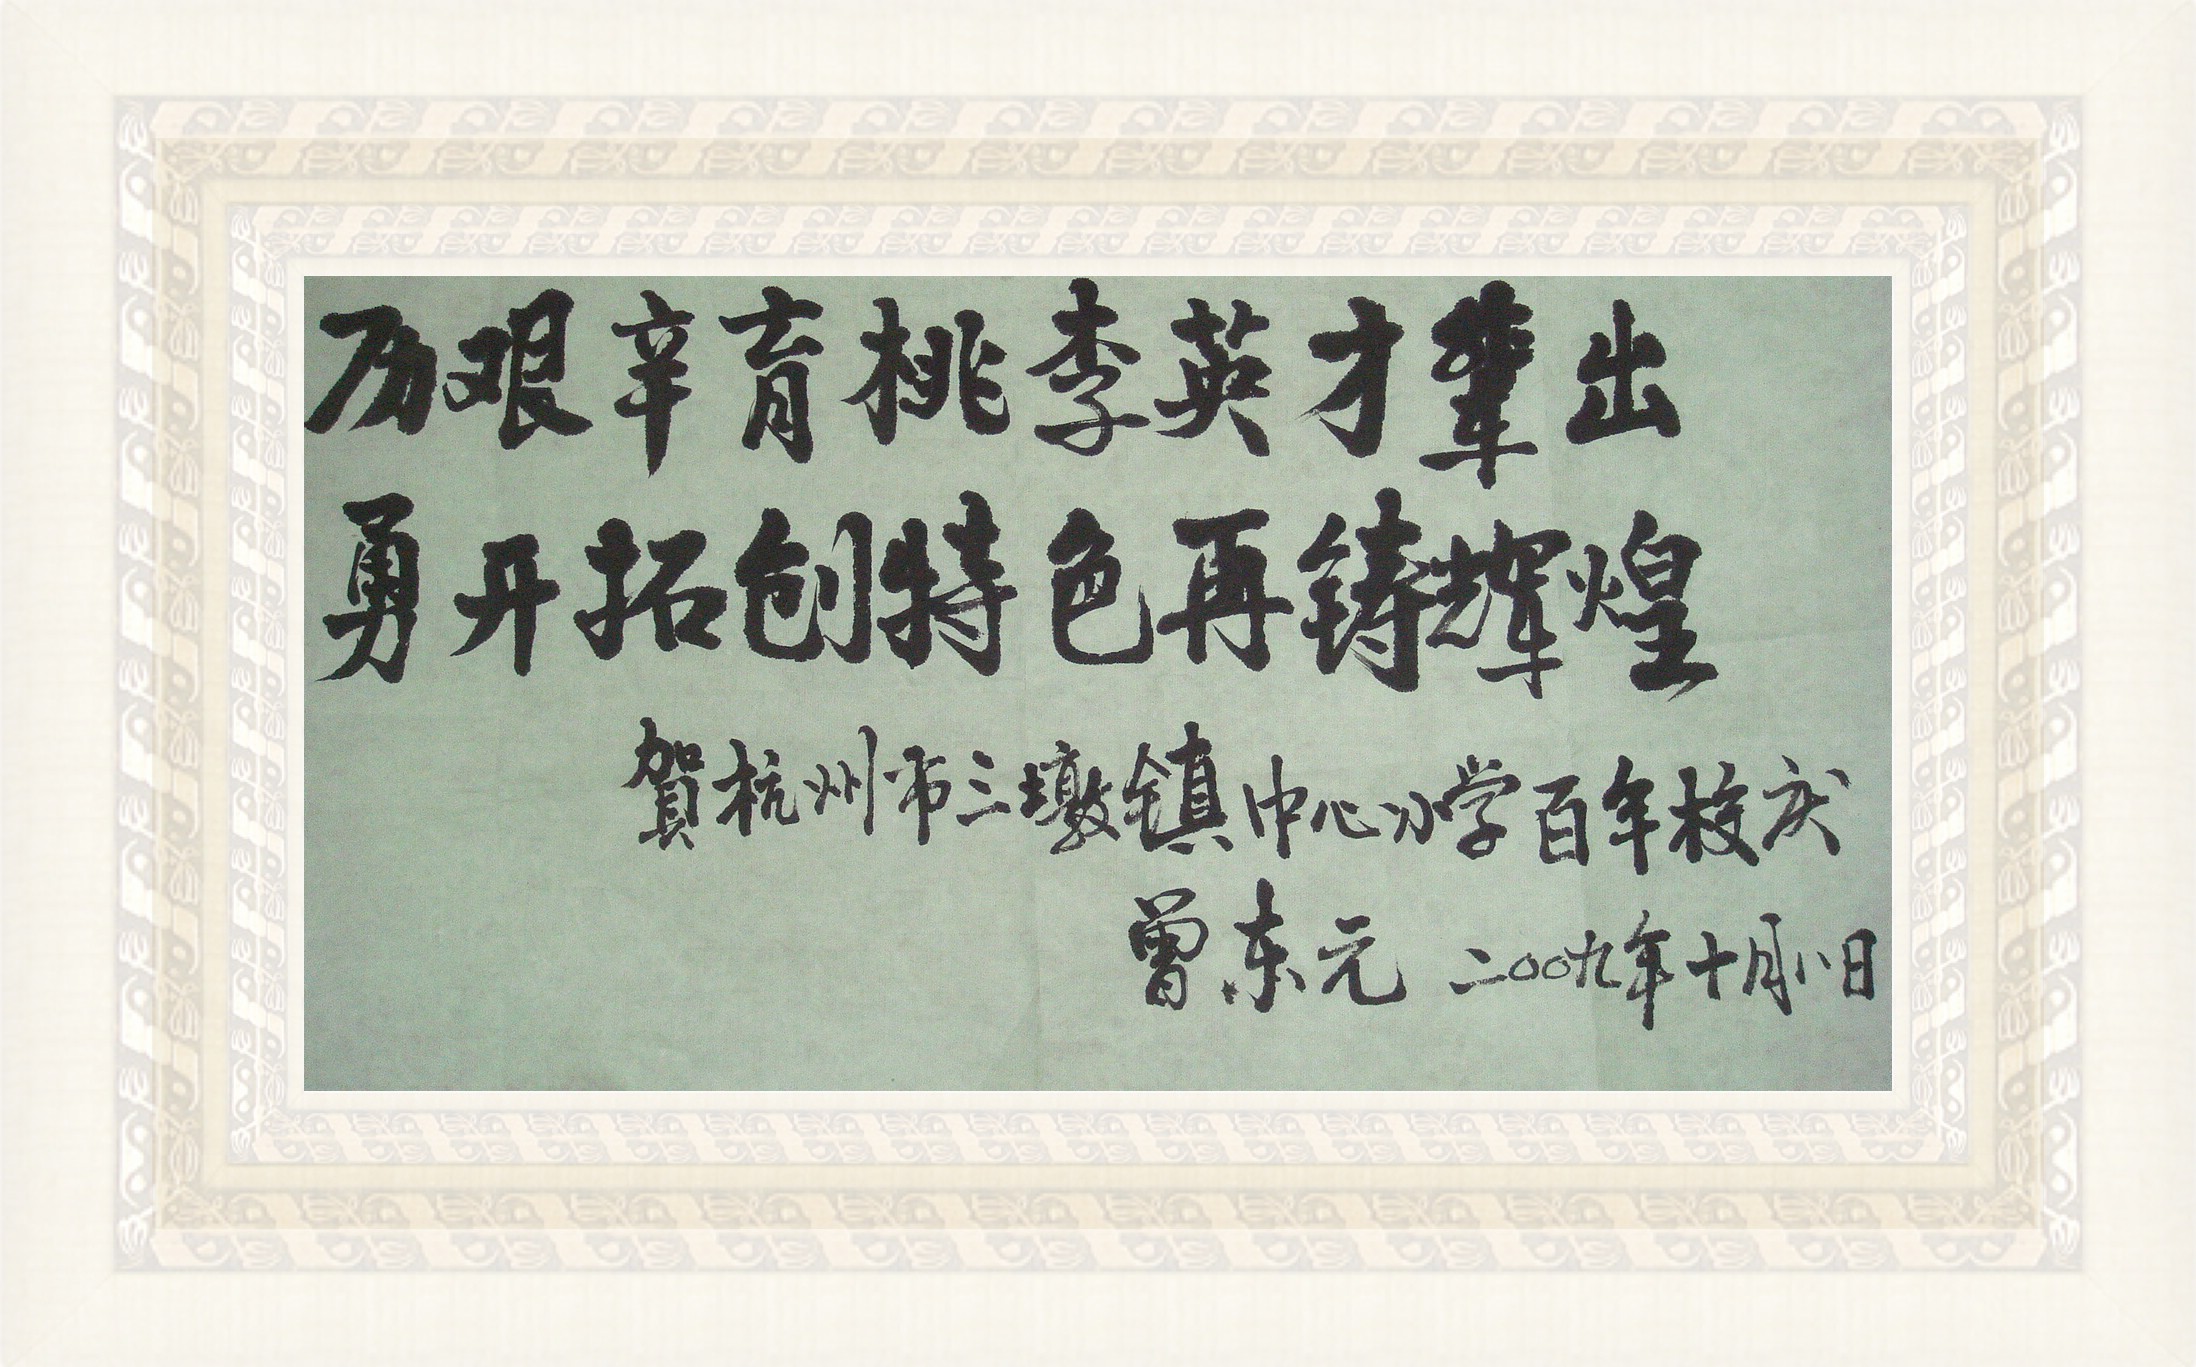 历艰辛育桃李英才辈出
勇开拓创特色再铸辉煌
賀杭州市三墩镇中心小学百年校庆
曾东元 二〇〇九年十月八日